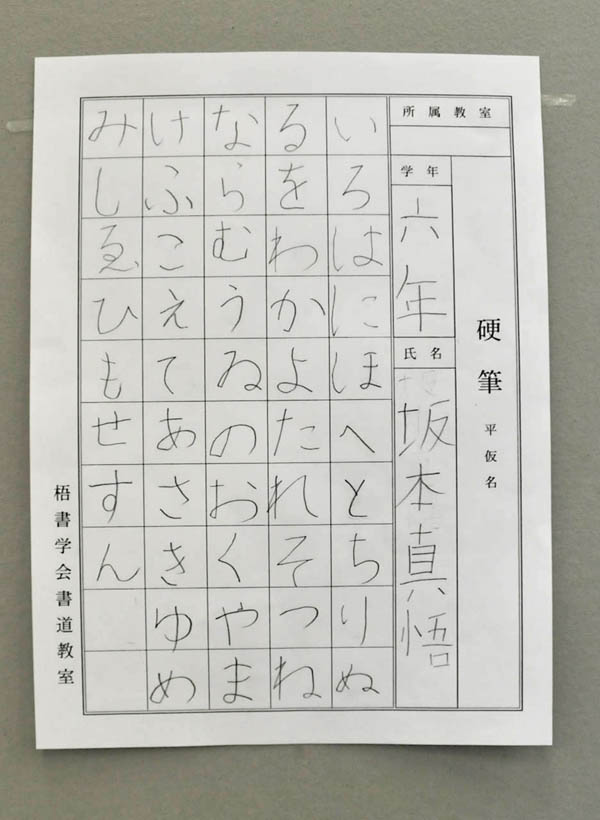 硬筆 平仮名
所属教室
学年
六年
氏名
坂本真悟
いろはにほへとちりぬ
るをわかよたれそつね
ならむうゐのおくやま
けふこえてあさきゆめ
みしゑひもせすん
梧書学会書道教室